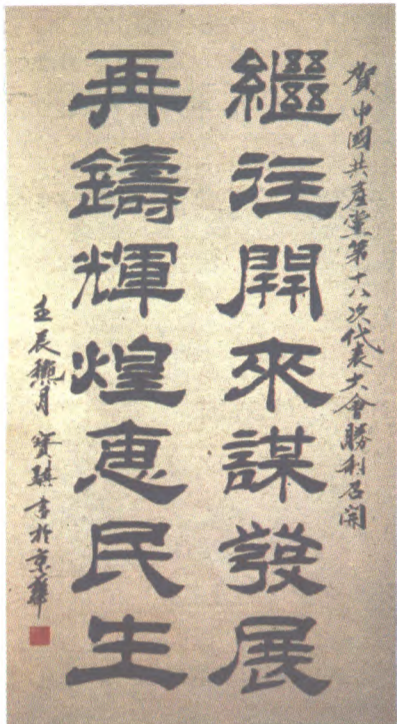 賀中國共產黨第十八次代表大會勝利召開
繼往開來謀發展
再鑄輝煌惠民生
壬辰穐月寶騏書於京華